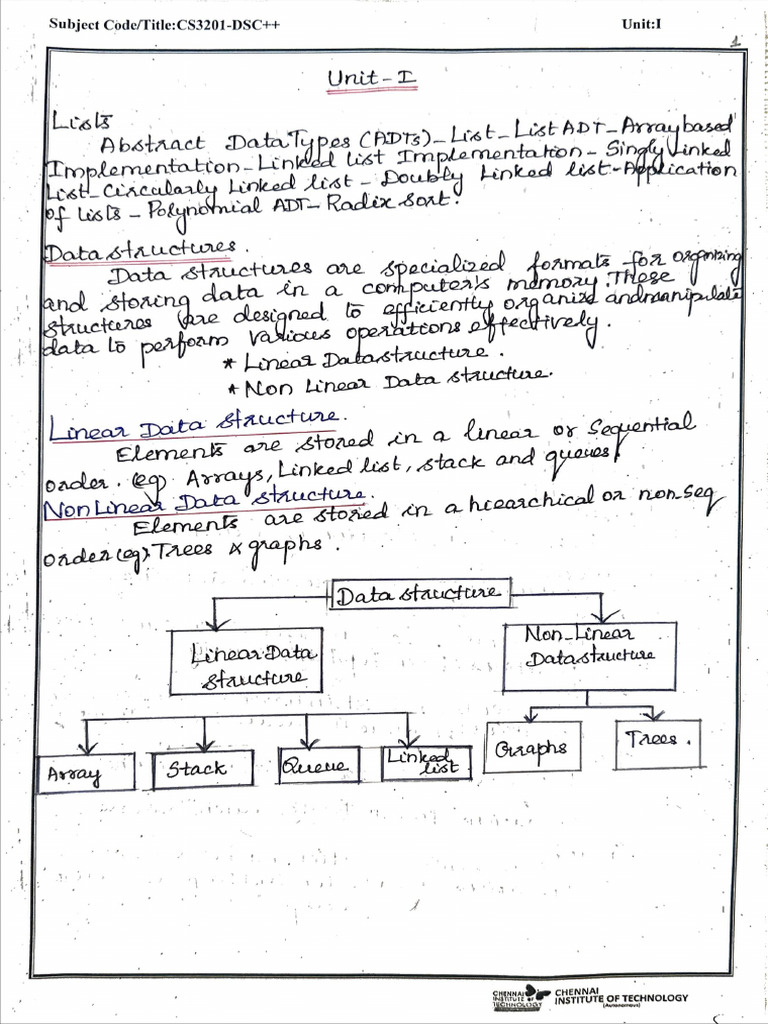 Subject Code/Title:CS3201-DSC++ Unit:I
1
Unit-I
Lists
Abstract Data Types (ADTs)-List-List ADT-Array based
Implementation-Linked list Implementation-Singly Linked
List-Circularly Linked list-Doubly Linked list-Application
of lists-Polynomial ADT-Radix Sort.
Data structures.
Data structures are specialized formats for organizing
and storing data in a computer's memory. These
structures are designed to efficiently organize and manipulate
data to perform various operations effectively.
* Linear Data structure.
* Non Linear Data structure.
Linear Data structure.
Elements are stored in a linear or sequential
order. (eg) Arrays, Linked list, stack and queues.
Non Linear Data structure.
Elements are stored in a hiearchical or non seq
order (eg) Trees & graphs.
Data structure
Linear Data
structure
Non-Linear
Data structure
Array
Stack
Queue
Linked
list
Graphs
Trees.
CHENNAI
INSTITUTE OF
TECHNOLOGY
CHENNAI
INSTITUTE OF TECHNOLOGY
(Autonomous)